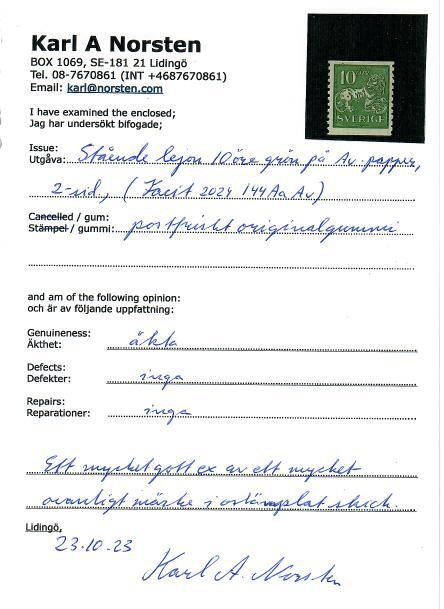 Karl A Norsten
BOX 1069, SE-181 21 Lidingö
Tel. 08-7670861 (INT +4687670861)
Email: karl@norsten.com
10 ÖRE
SVERIGE
I have examined the enclosed;
Jag har undersökt bifogade;
Issue:
Utgåva: Stående lejon 10 öre grön på Av-papper,
2-sid, (Facit 2024 144Aa Av)
Cancelled / gum:
Stämpel / gummi: postfriskt originalgummi
and am of the following opinion:
och är av följande uppfattning:
Genuineness:
Äkthet: äkta
Defects:
Defekter: inga
Repairs:
Reparationer: inga
Ett mycket gott ex av ett mycket
ovanligt märke i ostämplat skick.
Lidingö,
23.10.23
Karl A. Norsten